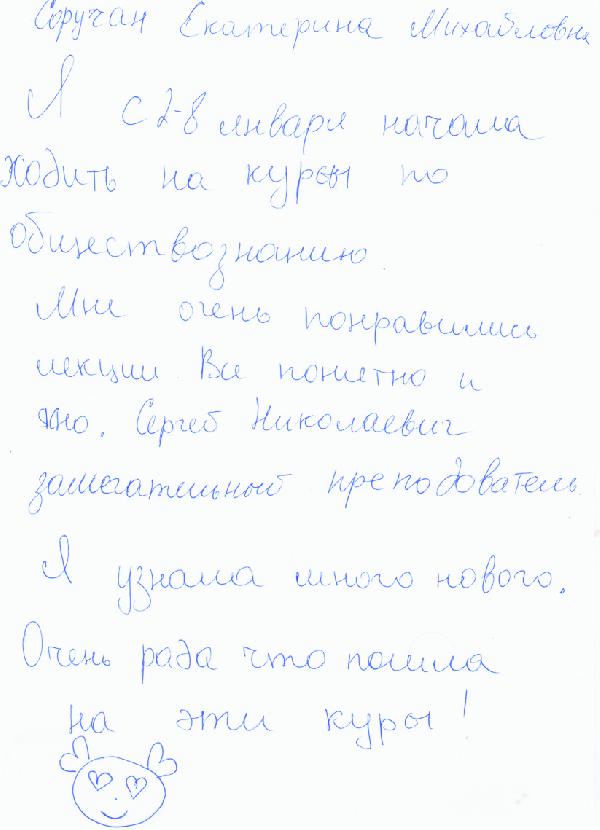 Соручан Екатерина Михайловна
Я с 2-8 января начала
ходить на курсы по
обществознанию
Мне очень понравились
лекции. Все понятно и
ясно. Сергей Николаевич
замечательный преподователь.
Я узнала много нового.
Очень рада что пошла
на эти куры!